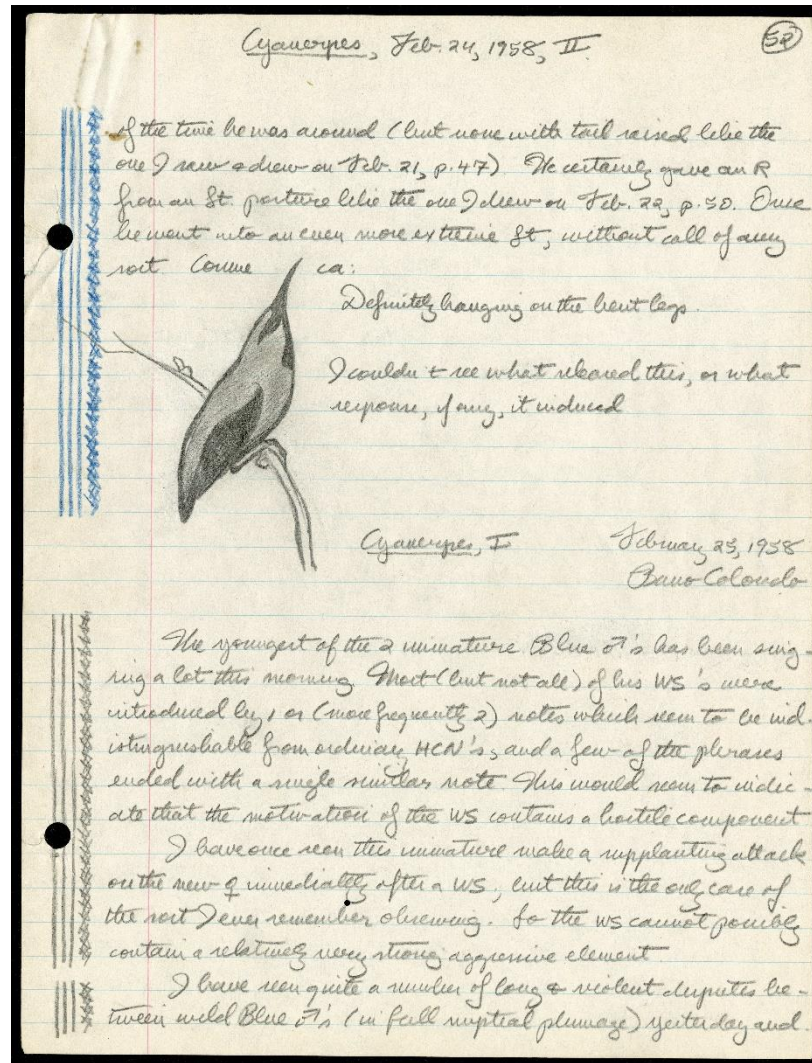 Cyanerpes, Feb. 24, 1958, II
52
of the time he was around (but none with tail raised like the
one I saw & drew on Feb. 21, p. 47) He certainly gave an R
from an St. posture like the one I drew on Feb. 22, p. 50. Once
he went into an even more extreme St, without call of any
sort ca:
Definitely hanging on the bent legs.
I couldn't see what released this, or what
response, if any, it induced
Cyanerpes, I
February 25, 1958
Barro Colorado
The youngest of the 2 immature Blue ♂'s has been sing-
ing a lot this morning. Most (but not all) of his WS's were
introduced by 1 or (more frequently 2) notes which seem to be ind-
istinguishable from ordinary HCN's, and a few of the phrases
ended with a single similar note. This would seem to indic-
ate that the motivation of the WS contains a hostile component
I have once seen this immature make a supplanting attack
on the new ♀ immediately after a WS, but this is the only case of
the sort I ever remember observing. So the WS cannot possibly
contain a relatively very strong aggressive element
I have seen quite a number of long & violent disputes be-
tween wild Blue ♂'s (in full nuptial plumage) yesterday and